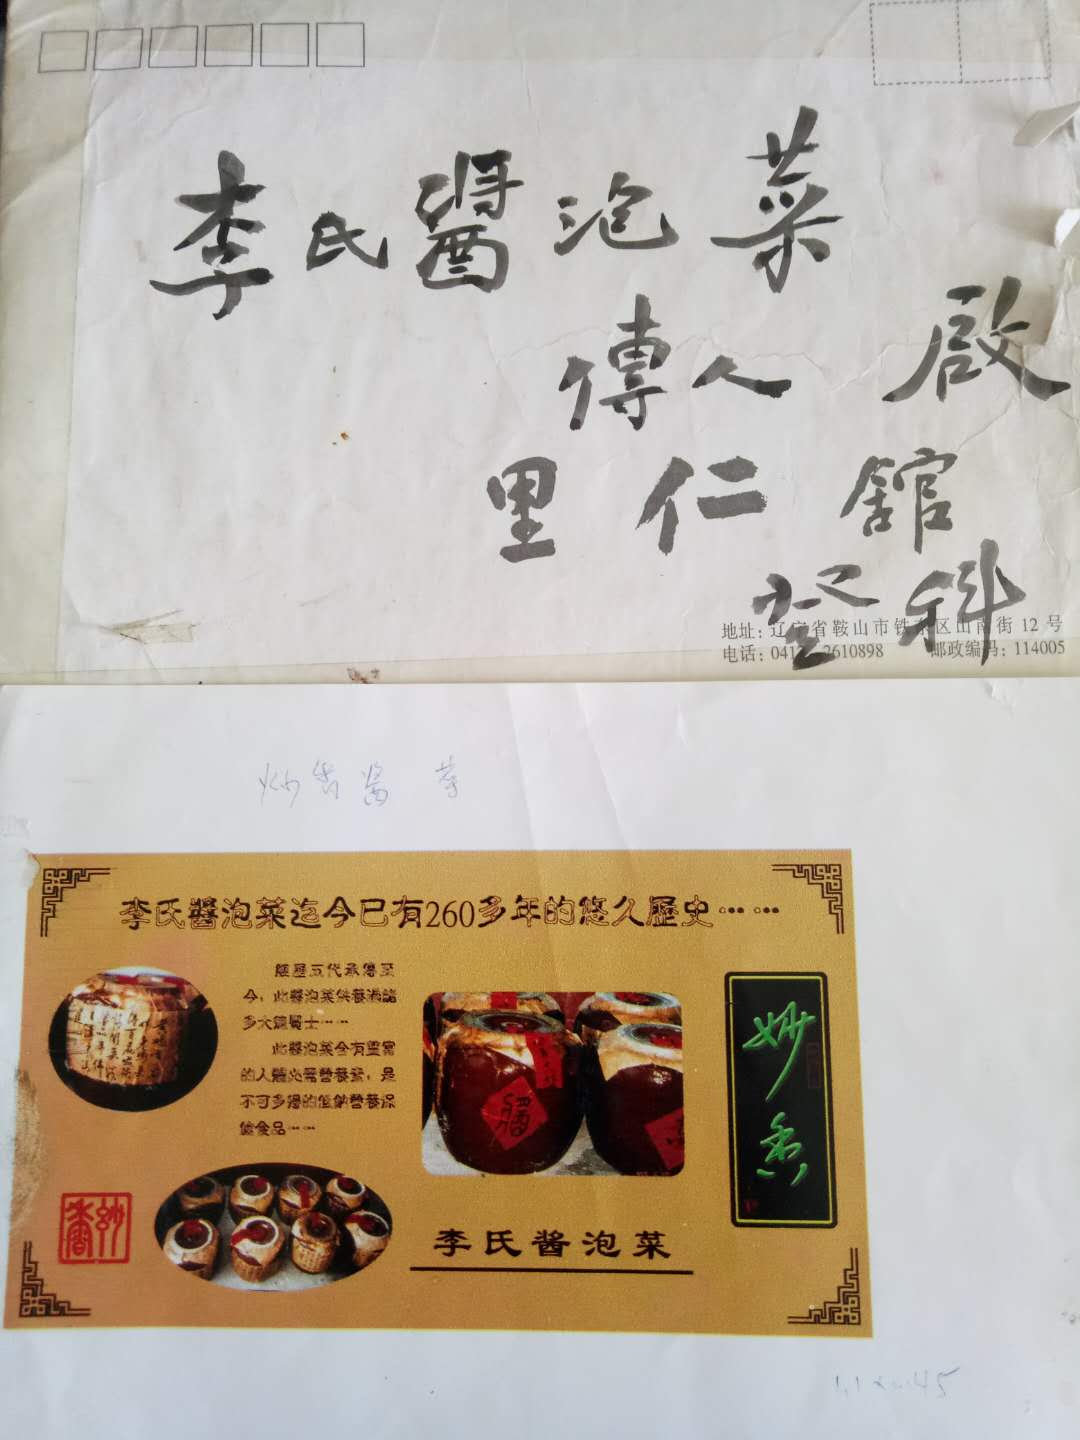 李氏醬泡菜
傳人 啟
里仁館
登科
地址：辽宁省鞍山市铁东区山南街12号
电话：041 2610898 邮政编码：114005
妙香醬菜
李氏醬泡菜迄今已有260多年的悠久歷史……
歷五代承傳至
今，此醬泡菜供養過諸
多大德居士……
此醬泡菜含有豐富
的人體必需營養素，是
不可多得的佳餚營養保
健食品……
妙香
福
妙香
李氏醬泡菜